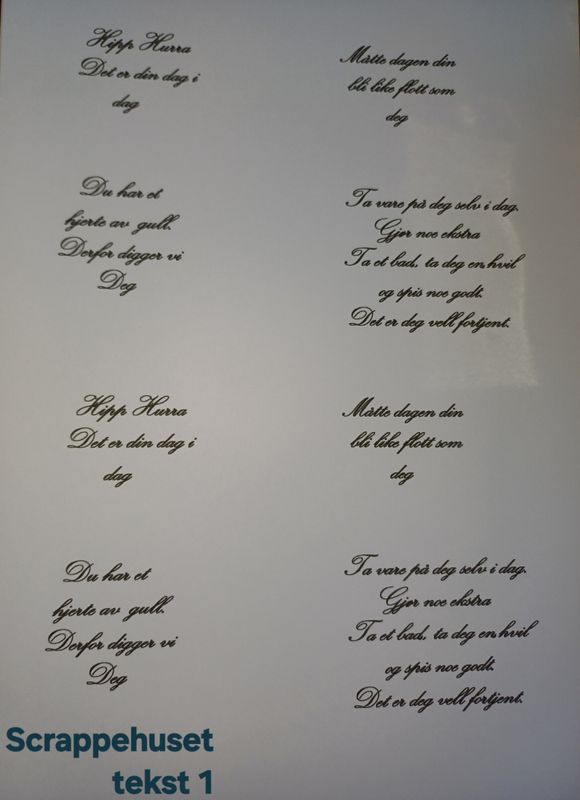 Hipp Hurra
Det er din dag i
dag
Måtte dagen din
bli like flott som
deg
Du har et
hjerte av gull.
Derfor digger vi
Deg
Ta vare på deg selv i dag.
Gjør noe ekstra
Ta et bad, ta deg en hvil
og spis noe godt.
Det er deg vell fortjent.
Hipp Hurra
Det er din dag i
dag
Måtte dagen din
bli like flott som
deg
Du har et
hjerte av gull.
Derfor digger vi
Deg
Ta vare på deg selv i dag.
Gjør noe ekstra
Ta et bad, ta deg en hvil
og spis noe godt.
Det er deg vell fortjent.
Scrappehuset
tekst 1